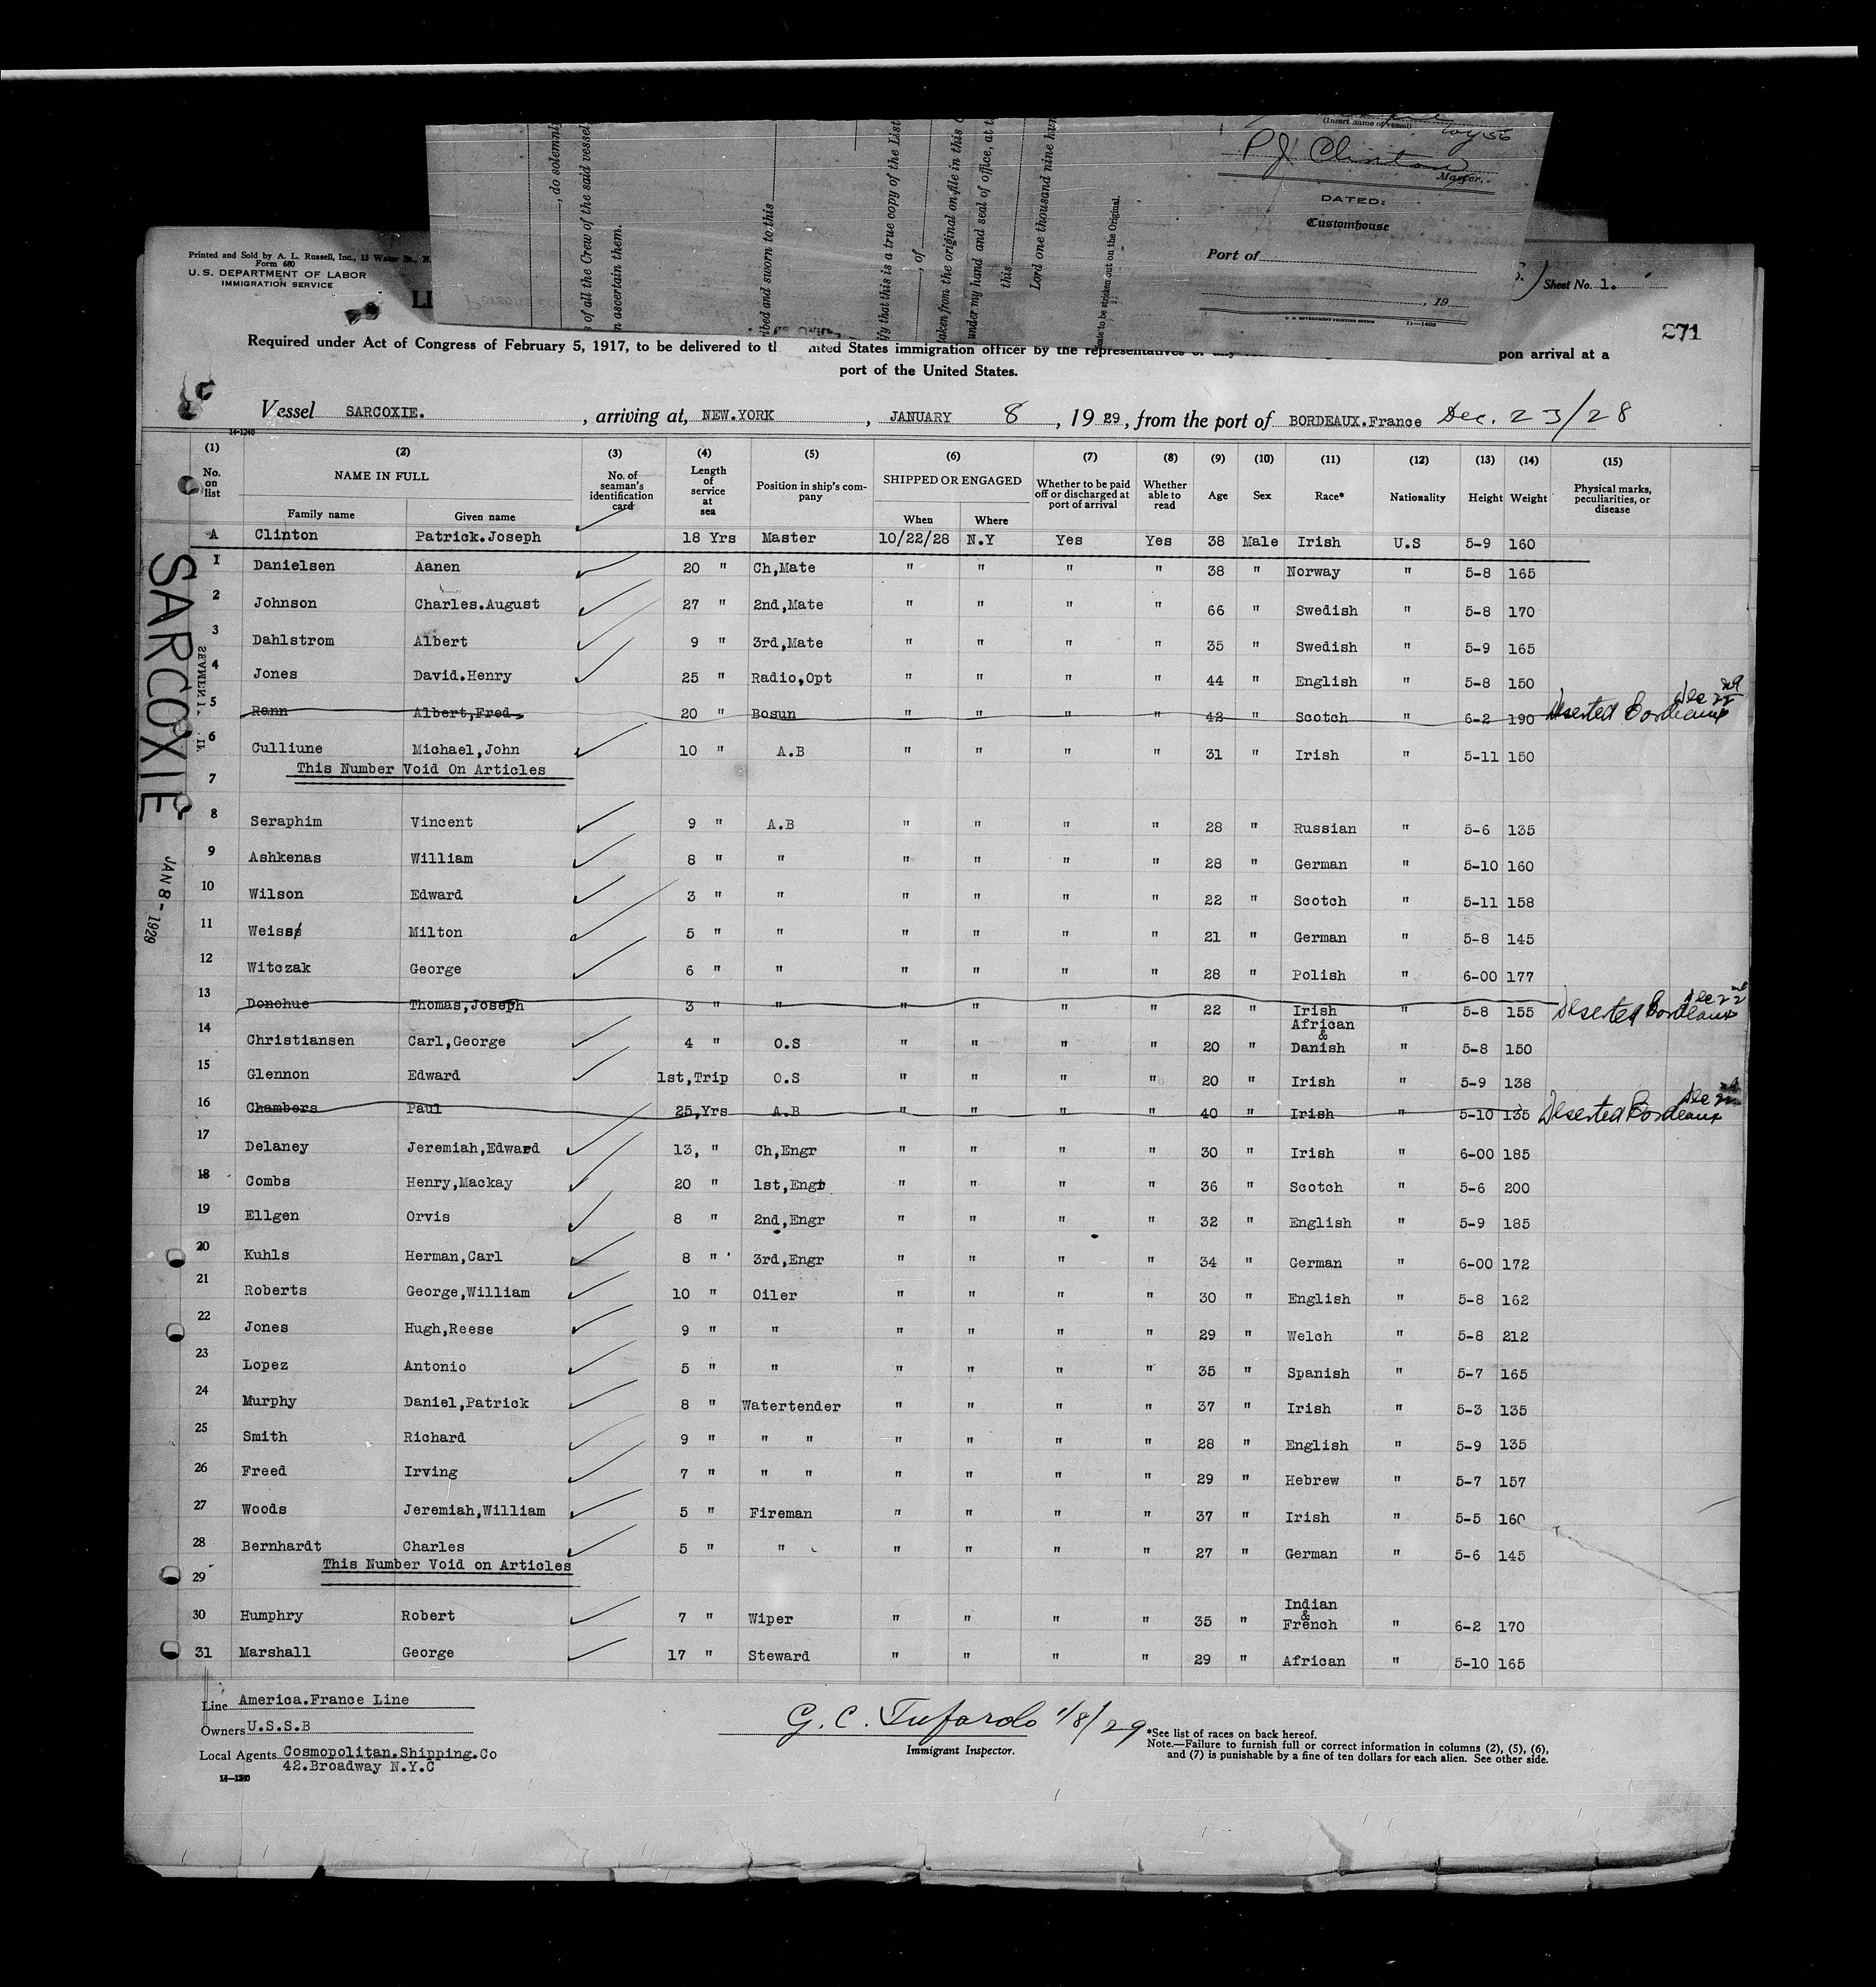 (Insert name of vessel)
P J Clinton
Master.
DATED:
Customhouse
Port of
, 19
U. S. GOVERNMENT PRINTING OFFICE 11—1403
, do solemnly
s of all the Crew of the said vessel,
n ascertain them.
ribed and sworn to this
ify that this is a true copy of the List
, of
taken from the original on file in this
under my hand and seal of office, at
this
Lord one thousand nine
to be stricken out on the Original.
Printed and Sold by A. L. Russell, Inc., 13 Water St.,
Form 680
U.S. DEPARTMENT OF LABOR
IMMIGRATION SERVICE
LI
Sheet No. 1.
271
Required under Act of Congress of February 5, 1917, to be delivered to th nited States immigration officer by the representatives of any pon arrival at a
port of the United States.
Vessel SARCOXIE. , arriving at, NEW.YORK , JANUARY 8 , 1929, from the port of BORDEAUX.France Dec. 23/28
14-1240
(1) (2) (3) (4) (5) (6) (7) (8) (9) (10) (11) (12) (13) (14) (15)
No. on list NAME IN FULL No. of seaman's identification card Length of service at sea Position in ship's company SHIPPED OR ENGAGED Whether to be paid off or discharged at port of arrival Whether able to read Age Sex Race* Nationality Height Weight Physical marks, peculiarities, or disease
Family name Given name When Where
A Clinton Patrick.Joseph 18 Yrs Master 10/22/28 N.Y Yes Yes 38 Male Irish U.S 5-9 160
1 Danielsen Aanen 20 " Ch,Mate " " " " 38 " Norway " 5-8 165
2 Johnson Charles.August 27 " 2nd,Mate " " " " 66 " Swedish " 5-8 170
3 Dahlstrom Albert 9 " 3rd,Mate " " " " 35 " Swedish " 5-9 165
4 Jones David.Henry 25 " Radio,Opt " " " " 44 " English " 5-8 150
5 Rann Albert,Fred. 20 " Bosun " " " " 42 " Scotch " 6-2 190 Deserted Bordeaux Dec 22nd
6 Culliune Michael,John 10 " A.B " " " " 31 " Irish " 5-11 150
7 This Number Void On Articles
8 Seraphim Vincent 9 " A.B " " " " 28 " Russian " 5-6 135
9 Ashkenas William 8 " " " " " " 28 " German " 5-10 160
10 Wilson Edward 3 " " " " " " 22 " Scotch " 5-11 158
11 Weiss Milton 5 " " " " " " 21 " German " 5-8 145
12 Witczak George 6 " " " " " " 28 " Polish " 6-00 177
13 Donohue Thomas,Joseph 3 " " " " " " 22 " Irish " 5-8 155 Deserted Bordeaux Dec 22nd
14 Christiansen Carl,George 4 " O.S " " " " 20 " African & Danish " 5-8 150
15 Glennon Edward 1st,Trip O.S " " " " 20 " Irish " 5-9 138
16 Chambers Paul 25,Yrs A.B " " " " 40 " Irish " 5-10 135 Deserted Bordeaux Dec 22nd
17 Delaney Jeremiah,Edward 13, " Ch,Engr " " " " 30 " Irish " 6-00 185
18 Combs Henry,Mackay 20 " 1st,Engr " " " " 36 " Scotch " 5-6 200
19 Ellgen Orvis 8 " 2nd,Engr " " " " 32 " English " 5-9 185
20 Kuhls Herman,Carl 8 " 3rd,Engr " " " " 34 " German " 6-00 172
21 Roberts George,William 10 " Oiler " " " " 30 " English " 5-8 162
22 Jones Hugh,Reese 9 " " " " " " 29 " Welch " 5-8 212
23 Lopez Antonio 5 " " " " " " 35 " Spanish " 5-7 165
24 Murphy Daniel,Patrick 8 " Watertender " " " " 37 " Irish " 5-3 135
25 Smith Richard 9 " " " " " " " 28 " English " 5-9 135
26 Freed Irving 7 " " " " " " " 29 " Hebrew " 5-7 157
27 Woods Jeremiah,William 5 " Fireman " " " " 37 " Irish " 5-5 160
28 Bernhardt Charles 5 " " " " " " 27 " German " 5-6 145
29 This Number Void on Articles
30 Humphry Robert 7 " Wiper " " " " 35 " Indian & French " 6-2 170
31 Marshall George 17 " Steward " " " " 29 " African " 5-10 165
SARCOXIE
JAN 8 - 1929
Line America.France Line
Owners U.S.S.B
Local Agents Cosmopolitan.Shipping.Co
42.Broadway N.Y.C
14—1240
G. C. Tufarolo 1/8/29
Immigrant Inspector.
*See list of races on back hereof.
Note.—Failure to furnish full or correct information in columns (2), (5), (6),
and (7) is punishable by a fine of ten dollars for each alien. See other side.